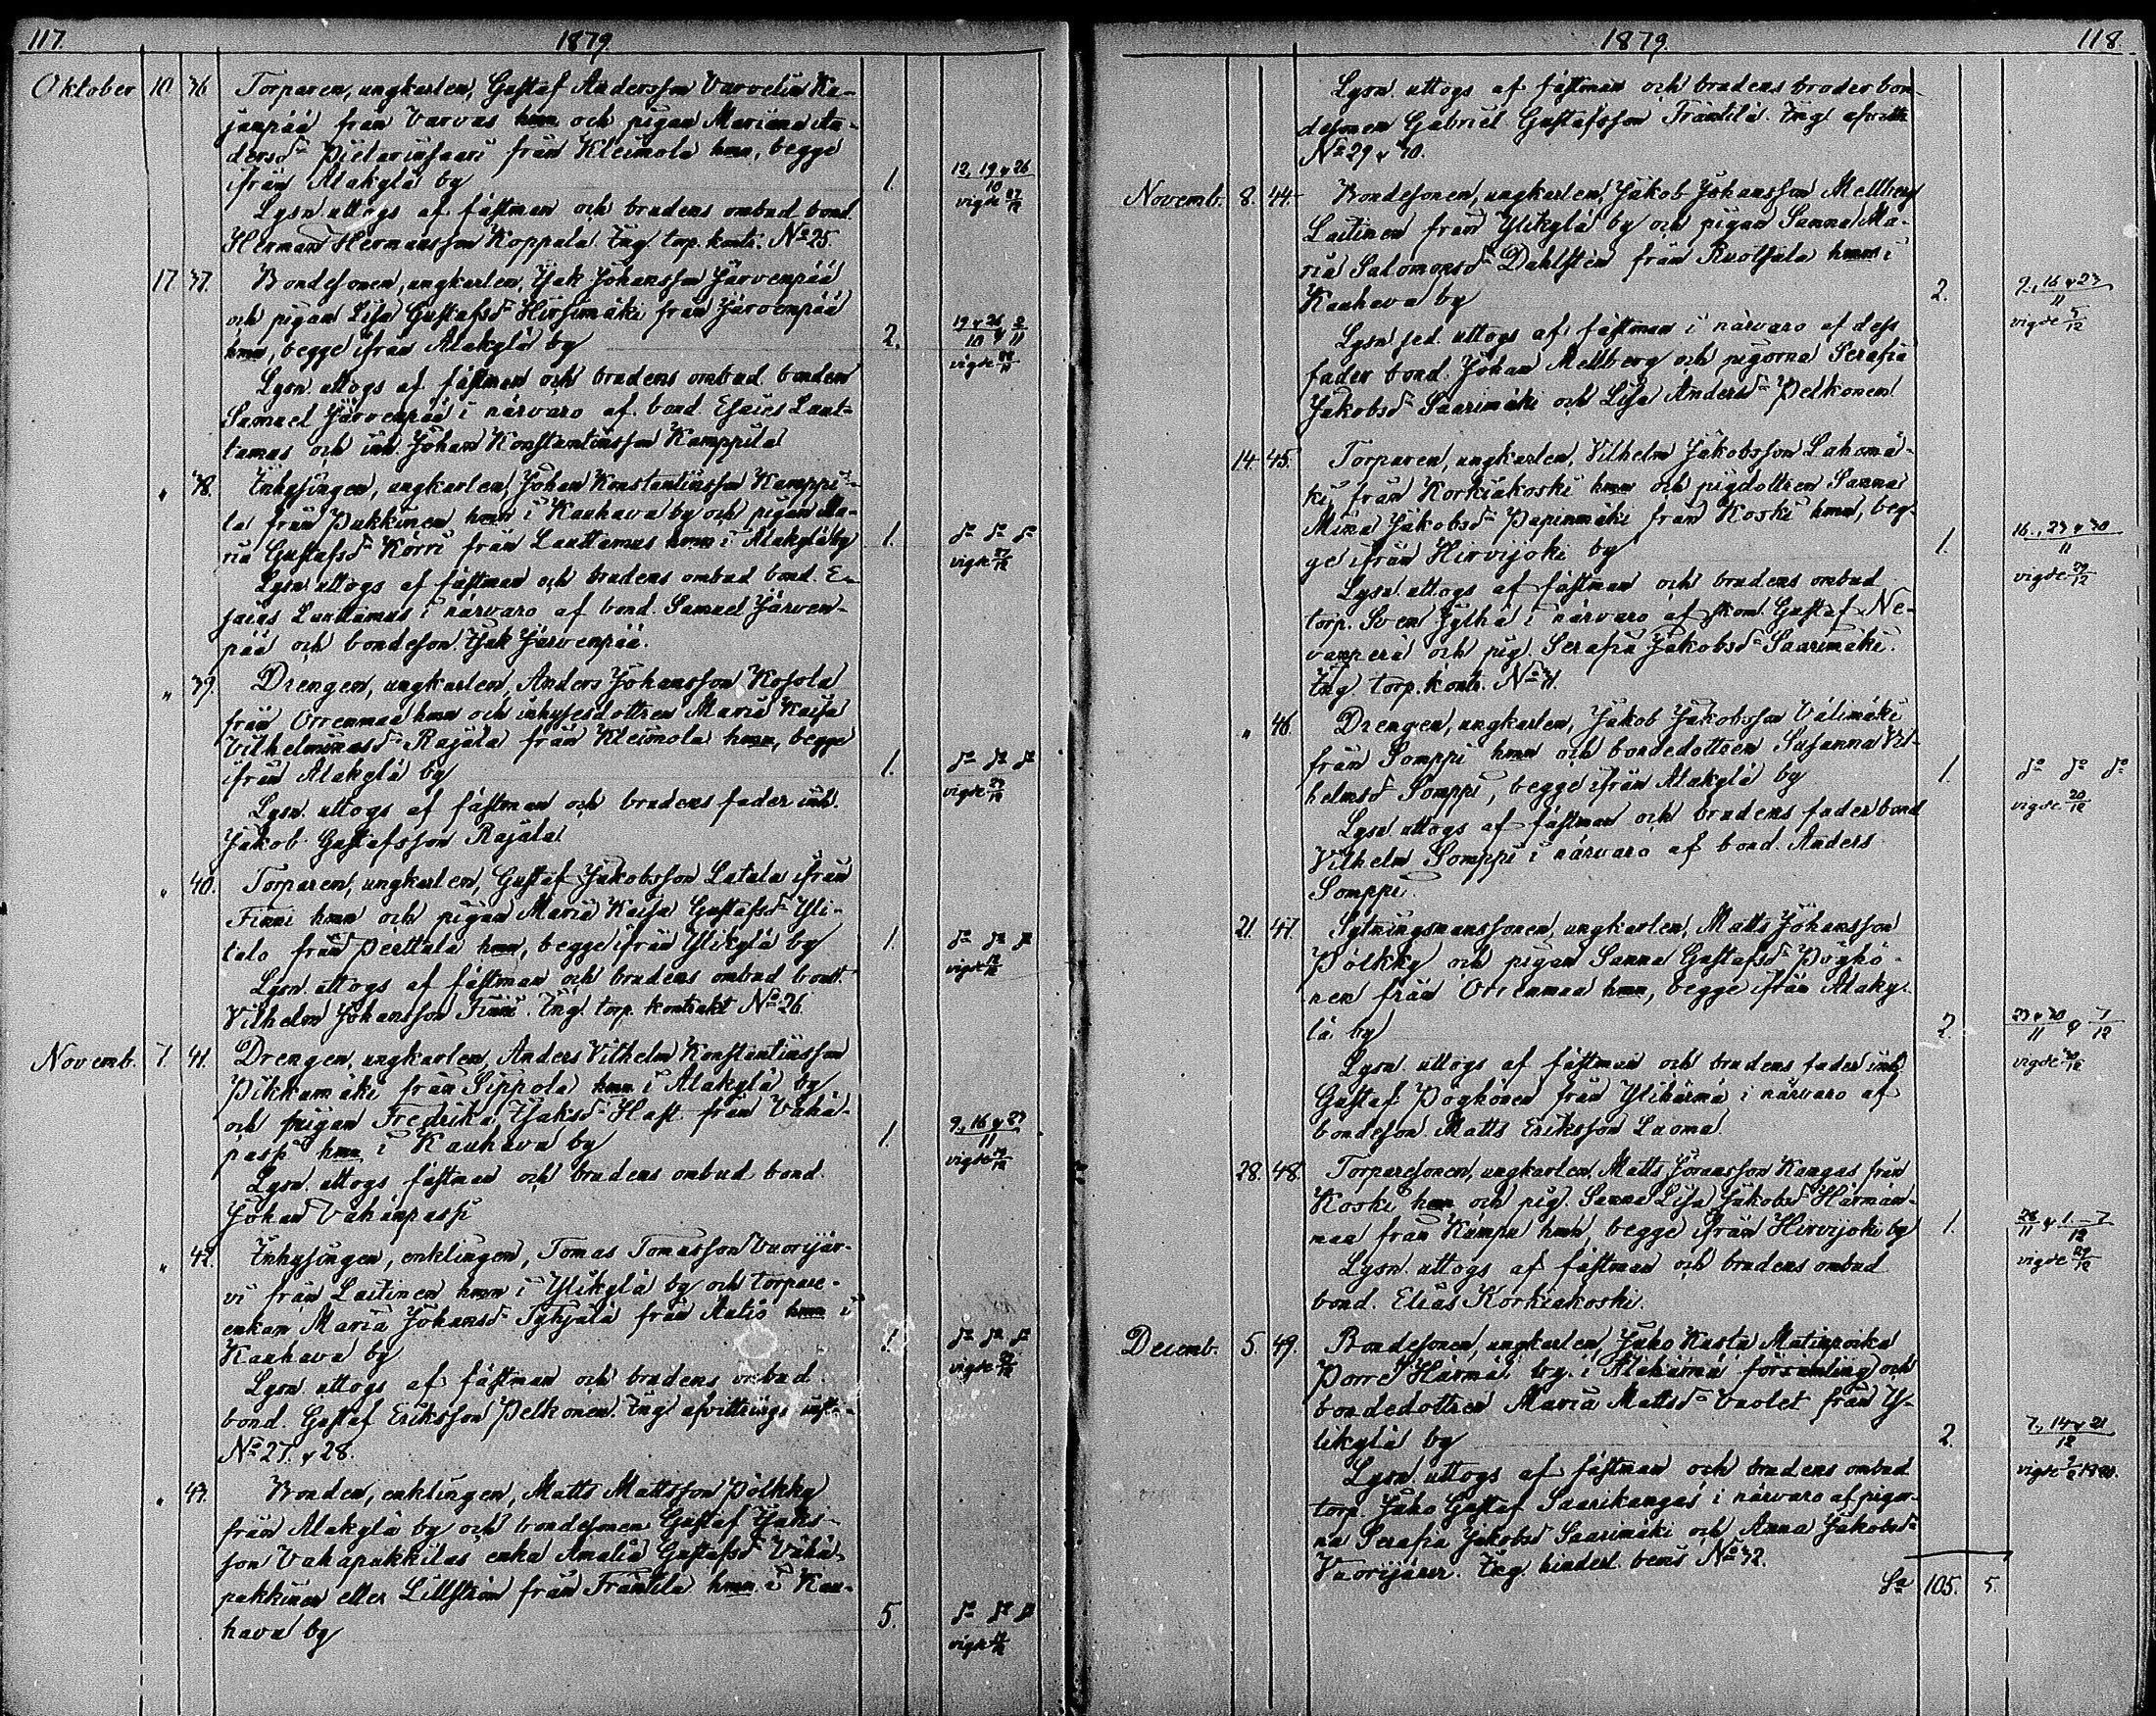 117. 1879
Oktober 10 36 Torparen, ungkarlen, Gustaf Andersson Varvelin Ka-
janpää från Varvas hmn och pigan Mariana An-
dersdr Pietarinsaari från Kleimola hmn, begge
ifrån Alakylä by 1. 12, 19 & 26/10
vigde 27/12
Lysn. uttogs af fästman och brudens ombud bond.
Herman Hermansson Koppala. Ing. torp. kontr. No 25.
17 37. Bondesonen, ungkarlen, Isak Johansson Järvenpää
och pigan Lisa Gustafsdr Hirsimäki från Järvenpää
hmn, begge ifrån Alakylä by 2. 19 & 26/10 & 2/11
vigde
Lysn. uttogs af fästman och brudens ombud bonden
Samuel Järvenpää i närvaro af bond. Esaias Laut-
tamus och inh. Johan Konstantinsson Kamppila
" 38. Inhysingen, ungkarlen, Johan Konstantinsson Kamppi-
la från Pukkinen hmn i Kauhava by och pigan Ma-
ria Gustafsdr Körri från Lauttamus hmn i Alakylä by 1. do do do
vigde 27/12
Lysn. uttogs af fästman och brudens ombud bond. E-
saias Lauttamus i närvaro af bond. Samuel Järven-
pää och bondeson. Isak Järvenpää.
" 39. Drengen, ungkarlen, Anders Johansson Kosola
från Orrenmaa hmn och inhysesdottren Maria Kaisa
Vilhelminasdr Rajala från Kleimola hmn, begge
ifrån Alakylä by 1. do do do
vigde
Lysn. uttogs af fästman och brudens fader inh.
Jakob Gustafsson Rajala
" 40. Torparen, ungkarlen, Gustaf Jakobsson Latala ifrån
Finni hmn och pigan Maria Kaisa Gustafsdr Yli-
talo från Perttula hmn, begge ifrån Ylikylä by 1. do do do
vigde
Lysn. uttogs af fästman och brudens ombud bond.
Vilhelm Johansson Finni. Ing. torp. kontrakt No 26
Novemb. 7. 41. Drengen, ungkarlen, Anders Vilhelm Konstantinsson
Pikkumäki från Sippola hmn i Alakylä by
och pigan Fredrika Isaksdr Hast från Vähä-
passi hmn i Kauhava by 1. 9, 16 & 23/11
vigde
Lysn. uttogs fästman och brudens ombud bond.
Johan Vähäpassi
" 42. Inhysingen, enklingen, Tomas Tomasson Vuorijär-
vi från Laitinen hmn i Ylikylä by och torpare-
enkan Maria Johansdr Tyhjälä från Autio hmn i
Kauhava by 1. do do do
vigde
Lysn. uttogs af fästman och brudens ombud
bond. Gustaf Eriksson Pelkonen. Ing. afvittrings instr.
No 27. & 28.
" 43. Bonden, enklingen, Matts Mattsson Pölkky
från Alakylä by och bondesonen Gustaf Isaks-
son Vähäpukkilas enka Amalia Gustafsdr Vähä-
pukkinen eller Lillström från Främtilä hmn i Kau-
hava by 5. do do do
vigde
1879. 118
Lysn. uttogs af fästman och brudens broder bon-
desonen Gabriel Gustafsson Främtilä. Ing. afvittr.
No 29 & 30.
Novemb. 8. 44. Bondesonen, ungkarlen, Jakob Johansson Mellberg
Laitinen från Ylikylä by och pigan Sanna Ma-
ria Salomonsdr Dahlsten från Ruotsala hmn i
Kauhava by 2. 9, 16 & 23/11
vigde 5/12
Lysn. sed. uttogs af fästman i närvaro af dess
fader bond. Johan Mellberg och pigorna Serafia
Jakobsdr Saarimäki och Lisa Andersdr Pelkonen
14. 45. Torparen, ungkarlen, Vilhelm Jakobsson Lahomä-
ki från Korkiakoski hmn och pigdottren Sanna
Mina Jakobsdr Papinmäki från Koski hmn, beg-
ge ifrån Hirvijoki by 1. 16, 23 & 30/11
vigde 29/12
Lysn. uttogs af fästman och brudens ombud
torp. Sven Jylhä i närvaro af skom. Gustaf Ne-
vanperä och pig. Serafia Jakobsdr Saarimäki.
Ing. torp. kontr. No 31.
" 46. Drengen, ungkarlen, Jakob Jakobsson Välimäki
från Somppi hmn och bondedottren Susanna Vil-
helmsdr Somppi, begge ifrån Alakylä by 1. do do do
vigde 20/12
Lysn. uttogs af fästman och brudens fader bond
Vilhelm Somppi i närvaro af bond. Anders
Somppi.
21. 47. Sytningsmanssonen, ungkarlen, Matts Johansson
Pölkky och pigan Sanna Gustafsdr Pöyhö-
nen från Orrenmaa hmn, begge ifrån Alaky-
lä by 2. 23 & 30/11 & 7/12
vigde
Lysn. uttogs af fästman och brudens fader inh
Gustaf Pöyhönen från Ylihärmä i närvaro af
bondeson. Matts Eriksson Luoma.
28. 48. Torparesonen, ungkarlen, Matts Göransson Kangas från
Koski hmn och pig. Sanna Lisa Jakobsdr Härmän-
maa från Kampu hmn, begge ifrån Hirvijoki by 1.
vigde 29/12
Lysn. uttogs af fästman och brudens ombud
bond. Elias Korkiakoski.
Decemb. 5. 49. Bondesonen, ungkarlen, Juho Kusta Matinpoika
Porre Härmä by i Alahärmä församling och
bondedottren Maria Mattsdr Vuolet från Y-
likylä by 2. 7, 14 & 21/12
vigde
Lysn. uttogs af fästman och brudens ombud
torp. Juho Gustaf Saarikangas i närvaro af pigor-
na Serafia Jakobsdr Saarimäki och Anna Jakobsdr
Vuorijärvi. Ing. hinderl. bevis No 32.
Sa 105. 5.